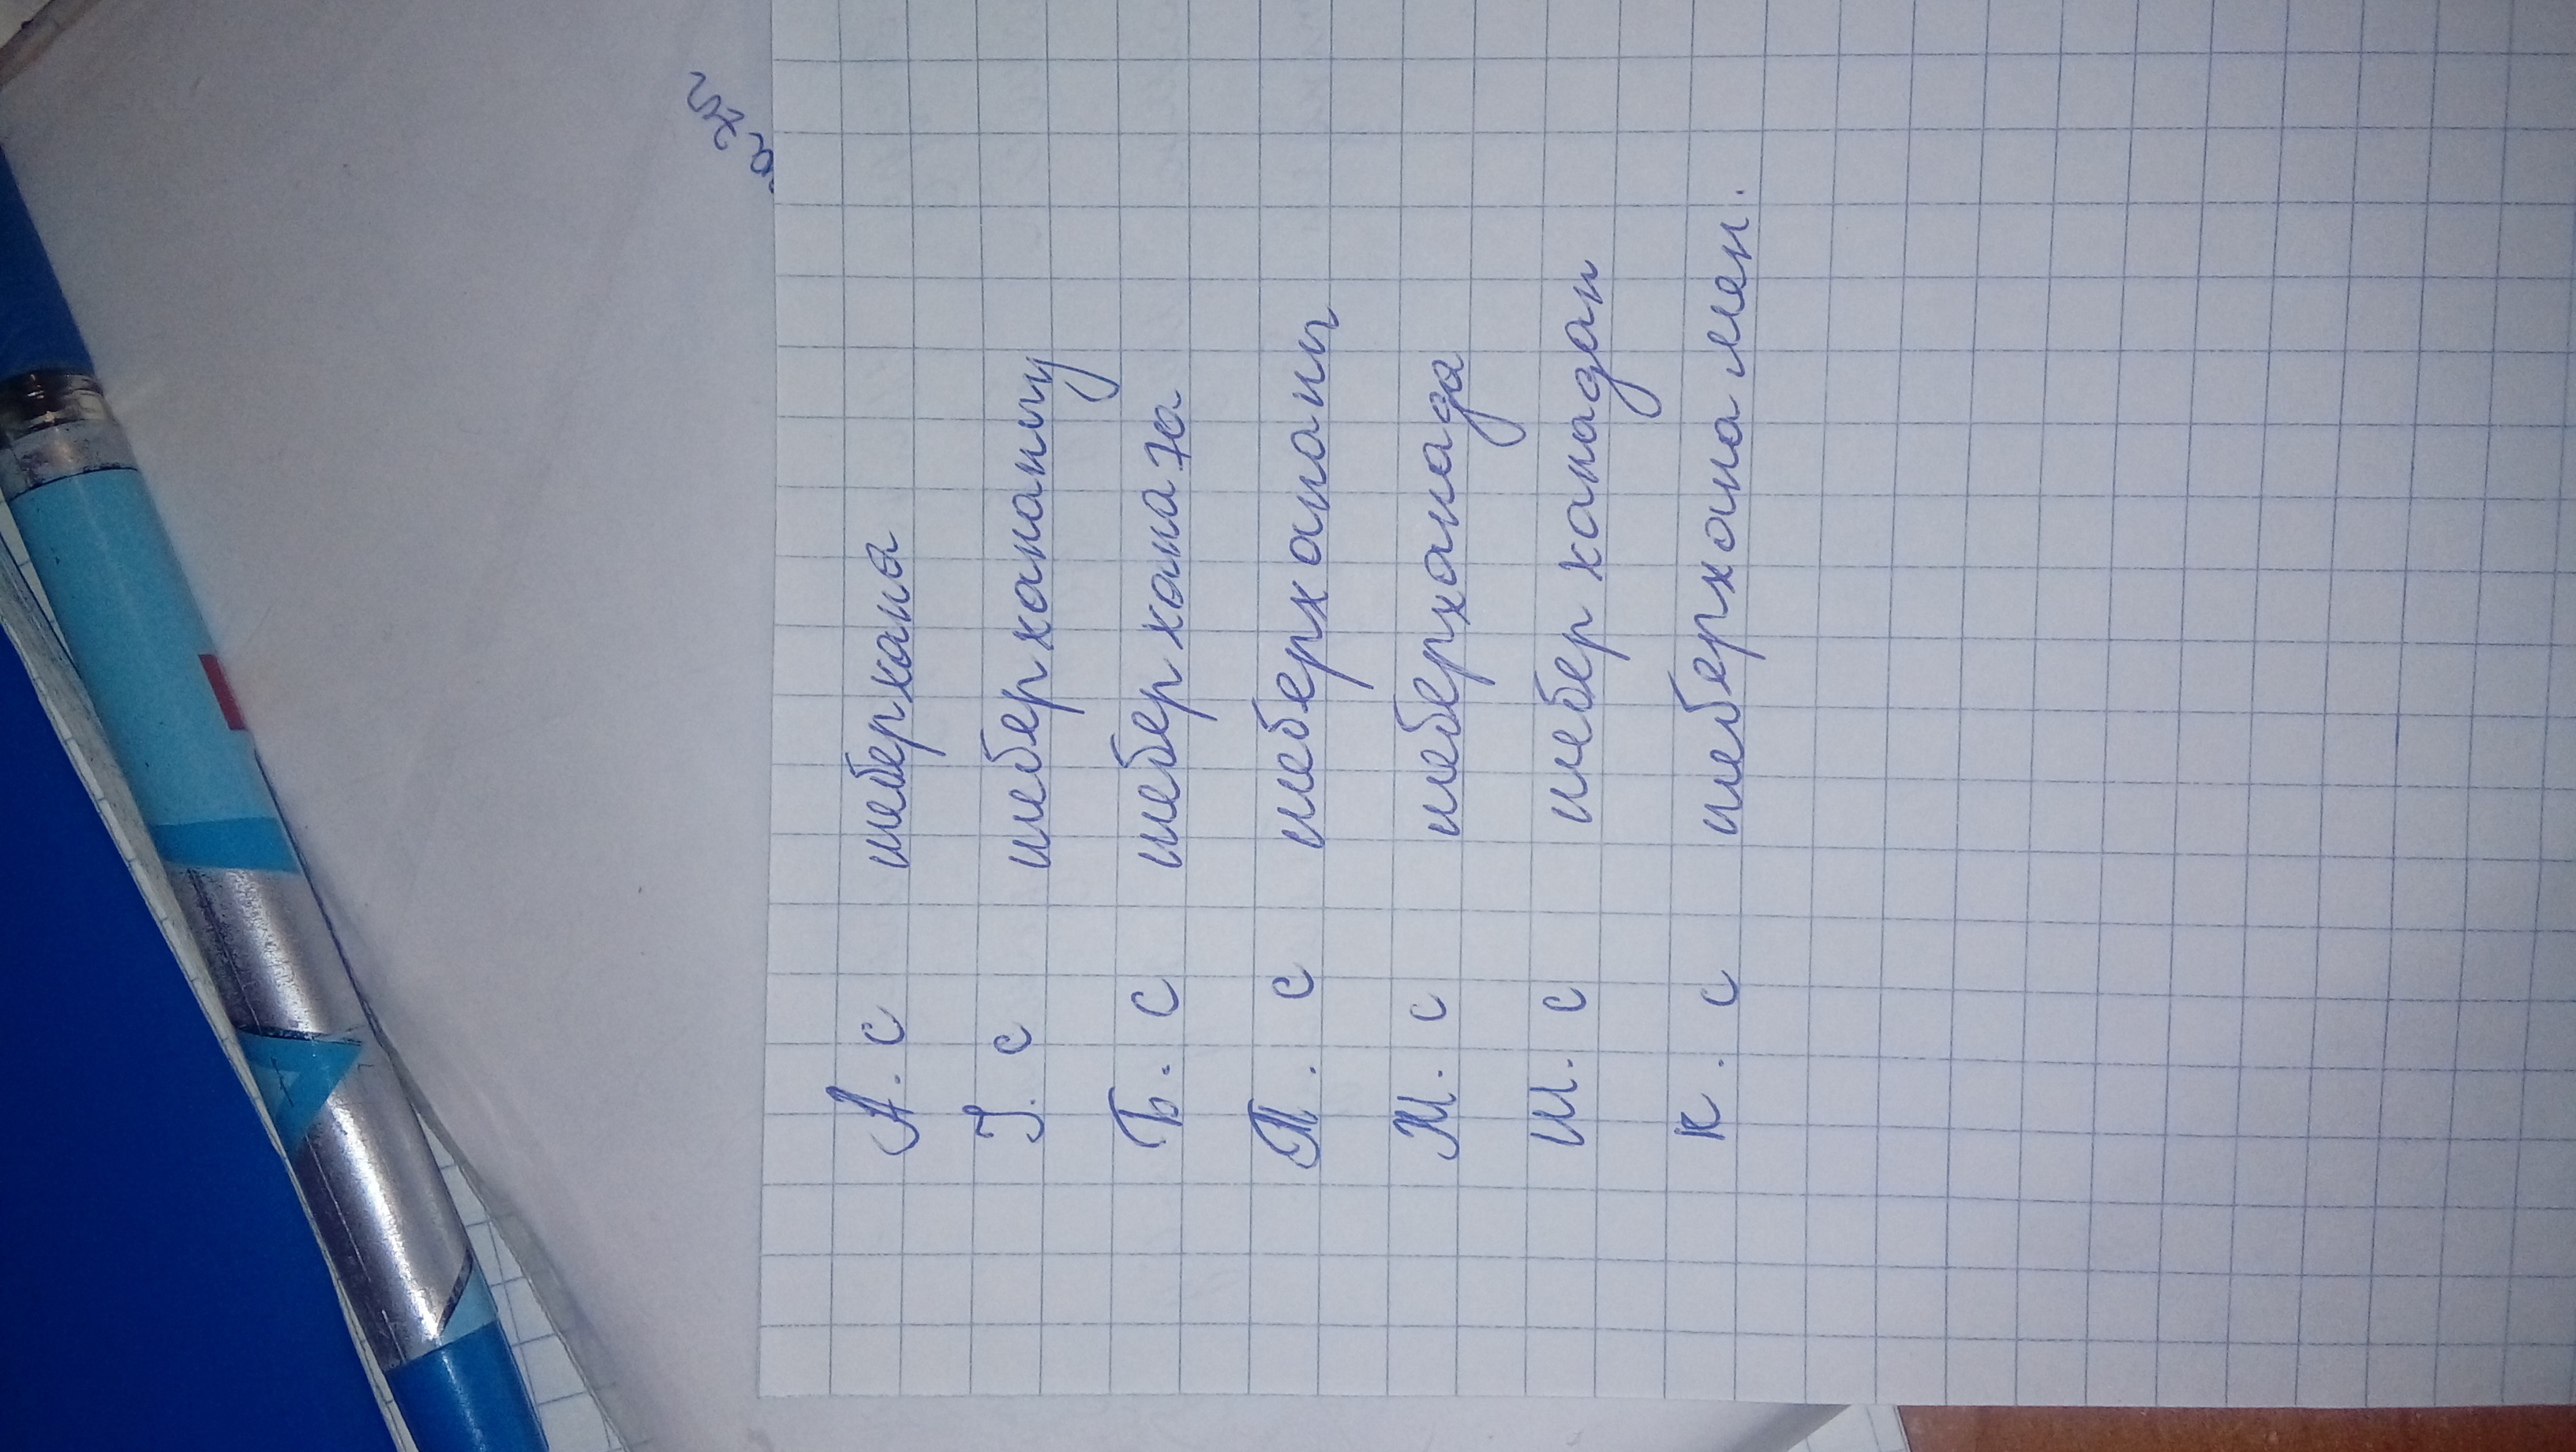 А. с шеберхана
I. с шеберхананың
Б. с шеберханаға
Т. с шеберхананы
Ж. с шеберханада
Ш. с шеберханадан
К. с шеберханамен.